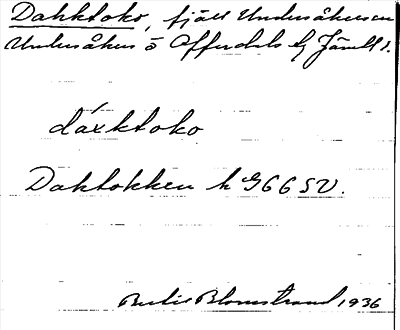 Dahktoko, fjäll Undersåkers sn
Undersåkers o Offerdals hd Jämtl.
dáxktoko
Daktokken k G66SV.
Bertil Blomstrand 1936